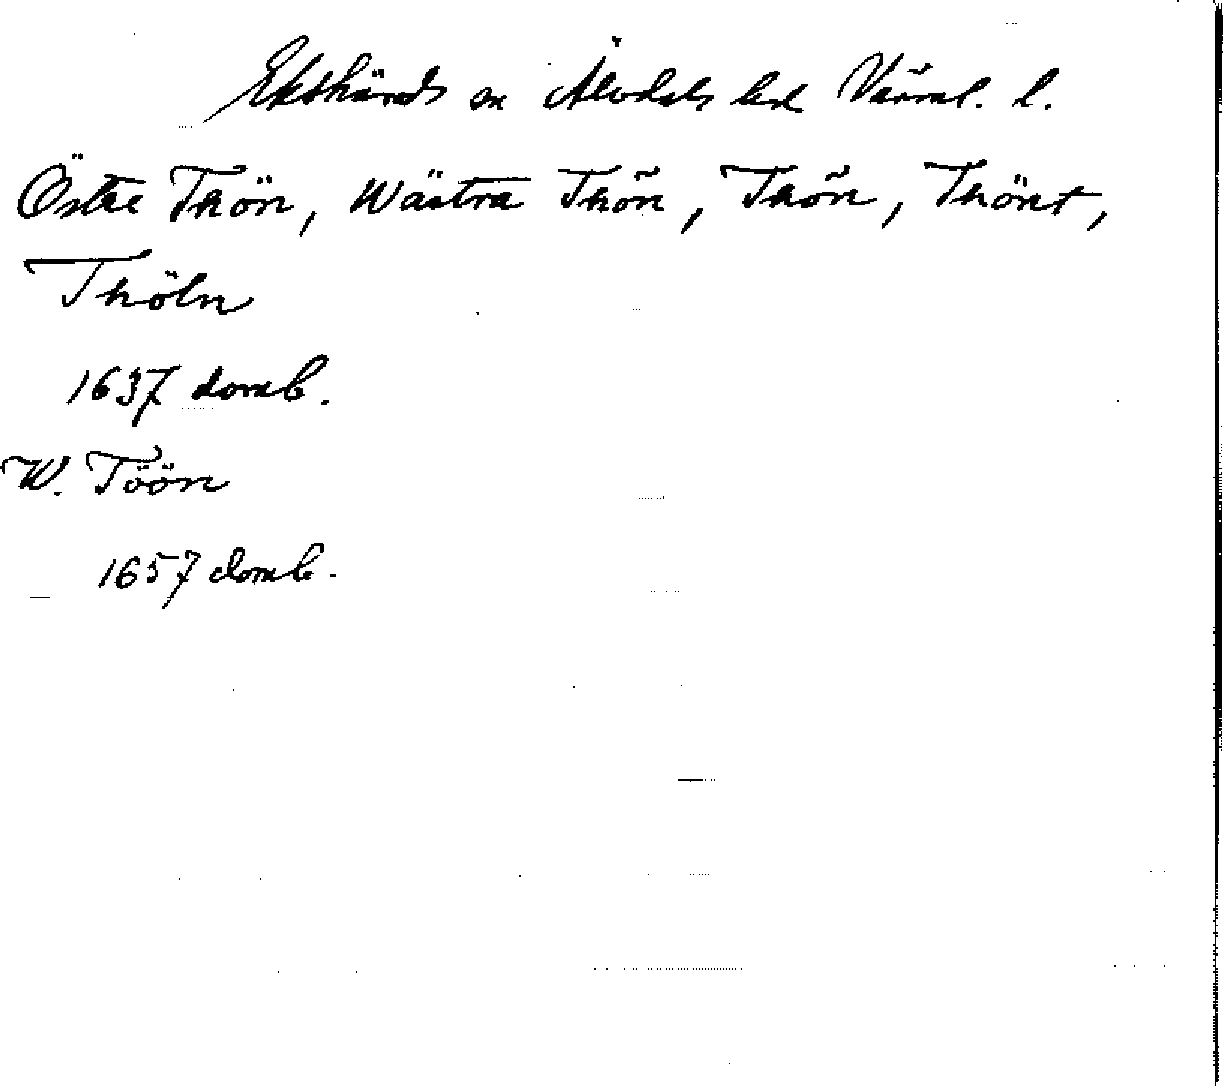 Ekshärads sn Älvdals hd Värml. l.
Östre Thön, Wästra Thön, Thön, Thönt,
Thöln
1637 domb.
W. Töön
1657 domb.